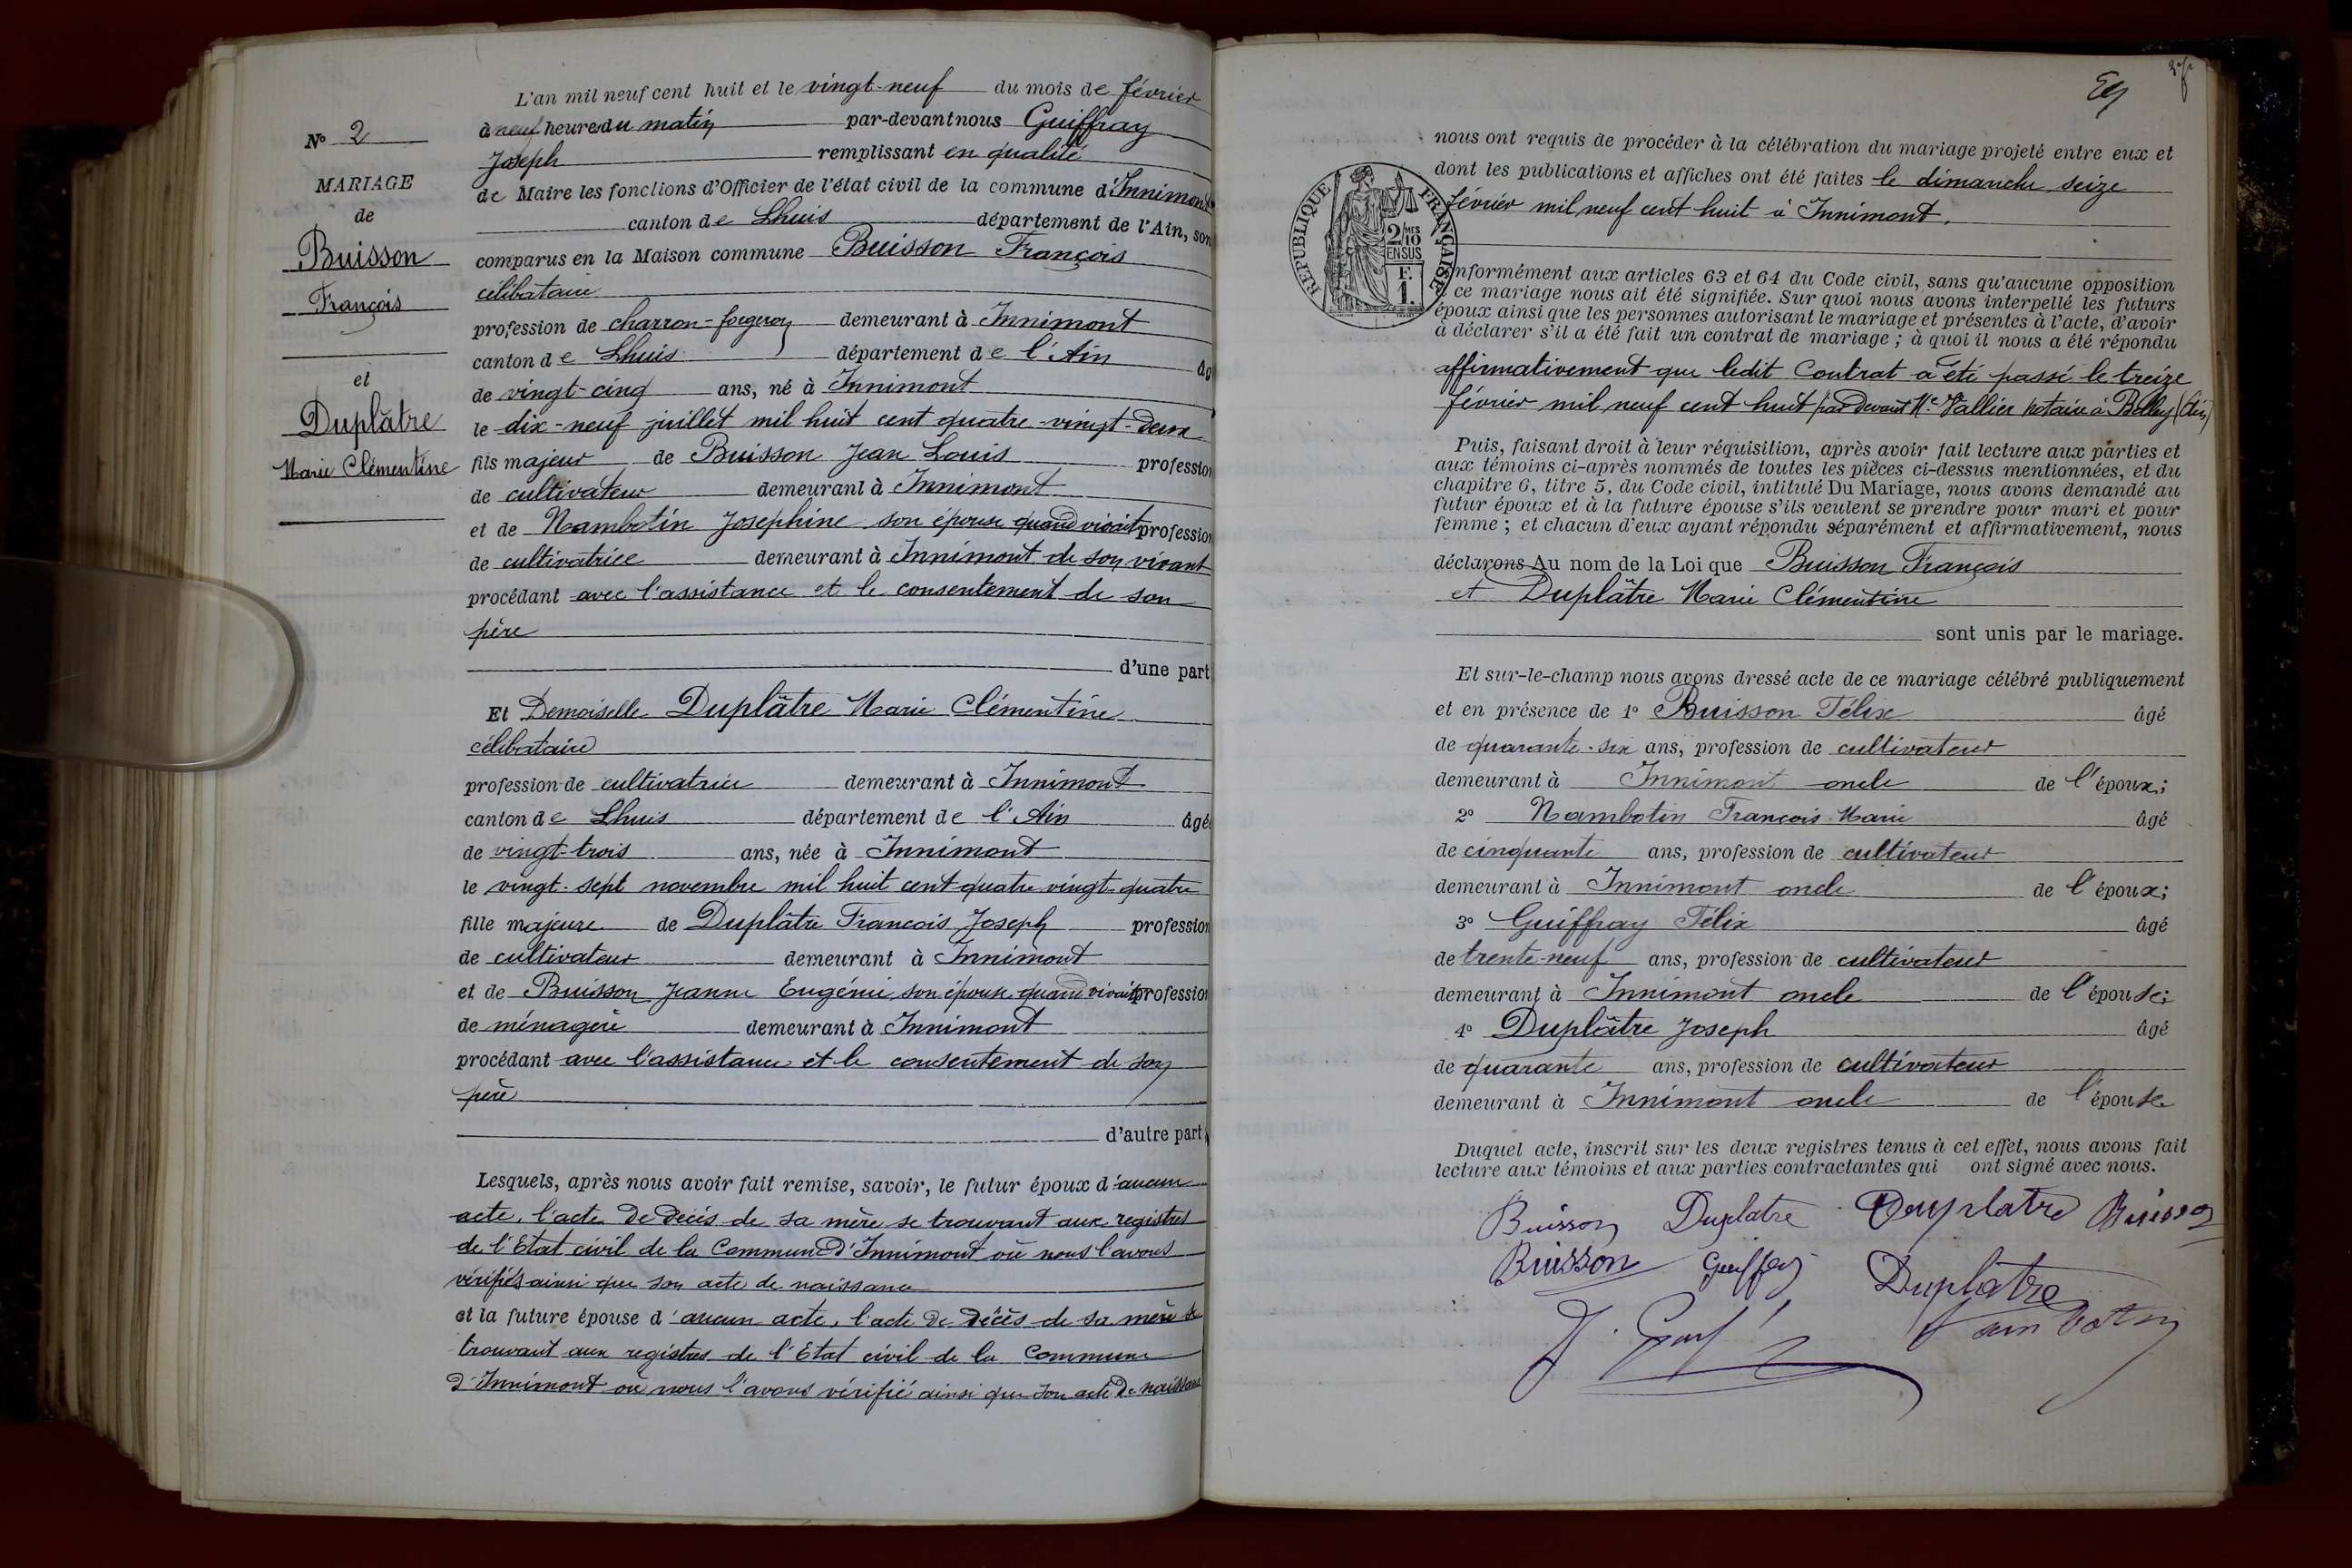 L'an mil neuf cent huit et le vingt-neuf du mois de février
à neuf heures du matin par-devant nous Guiffray
Joseph remplissant en qualité
de Maire les fonctions d'Officier de l'état civil de la commune d'Innimont
canton de Lhuis département de l'Ain, son
comparus en la Maison commune Buisson François
célibataire
profession de charron-forgeron demeurant à Innimont
canton de Lhuis département de l'Ain âg
de vingt-cinq ans, né à Innimont
le dix-neuf juillet mil huit cent quatre-vingt-deux
fils majeur de Buisson Jean Louis profession
de cultivateur demeurant à Innimont
et de Nambotin Josephine son épouse quand vivait profession
de cultivatrice demeurant à Innimont de son vivant
procédant avec l'assistance et le consentement de son
père
d'une part
Et Demoiselle Duplâtre Marie Clémentine
célibataire
profession de cultivatrice demeurant à Innimont
canton de Lhuis département de l'Ain âgé
de vingt-trois ans, née à Innimont
le vingt-sept novembre mil huit cent quatre vingt-quatre
fille majeure de Duplâtre François Joseph profession
de cultivateur demeurant à Innimont
et de Buisson Jeanne Eugénie, son épouse quand vivait profession
de ménagère demeurant à Innimont
procédant avec l'assistance et le consentement de son
père
d'autre part
Lesquels, après nous avoir fait remise, savoir, le futur époux d'aucun
acte, l'acte de décès de sa mère se trouvant aux registres
de l'Etat civil de la Commune d'Innimont où nous l'avons
vérifiés ainsi que son acte de naissance
et la future épouse d'aucun acte, l'acte de décès de sa mère se
trouvant aux registres de l'Etat civil de la Commune
d'Innimont où nous l'avons vérifié ainsi que son acte de naissance
N° 2
MARIAGE
de
Buisson
François
et
Duplâtre
Marie Clémentine
nous ont requis de procéder à la célébration du mariage projeté entre eux et
dont les publications et affiches ont été faites le dimanche seize
février mil neuf cent huit à Innimont.
RÉPUBLIQUE FRANÇAISE
2/10MES
EN SUS
F.
1.
nformément aux articles 63 et 64 du Code civil, sans qu'aucune opposition
ce mariage nous ait été signifiée. Sur quoi nous avons interpellé les futurs
époux ainsi que les personnes autorisant le mariage et présentes à l'acte, d'avoir
à déclarer s'il a été fait un contrat de mariage ; à quoi il nous a été répondu
affirmativement que ledit Contrat a été passé le treize
février mil neuf cent huit par devant Me Vallier notaire à Belley (Ain)
Puis, faisant droit à leur réquisition, après avoir fait lecture aux parties et
aux témoins ci-après nommés de toutes les pièces ci-dessus mentionnées, et du
chapitre 6, titre 5, du Code civil, intitulé Du Mariage, nous avons demandé au
futur époux et à la future épouse s'ils veulent se prendre pour mari et pour
femme ; et chacun d'eux ayant répondu séparément et affirmativement, nous
déclarons Au nom de la Loi que Buisson François
et Duplâtre Marie Clémentine
sont unis par le mariage.
Et sur-le-champ nous avons dressé acte de ce mariage célébré publiquement
et en présence de 1° Buisson Félix âgé
de quarante-six ans, profession de cultivateur
demeurant à Innimont oncle de l'époux;
2° Nambotin François Marie âgé
de cinquante ans, profession de cultivateur
demeurant à Innimont oncle de l'époux;
3° Guiffray Félix âgé
de trente-neuf ans, profession de cultivateur
demeurant à Innimont oncle de l'épouse;
4° Duplâtre Joseph âgé
de quarante ans, profession de cultivateur
demeurant à Innimont oncle de l'épouse
Duquel acte, inscrit sur les deux registres tenus à cet effet, nous avons fait
lecture aux témoins et aux parties contractantes qui ont signé avec nous.
Buisson Duplatre Duplatre Buisson
Buisson Guiffray Duplâtre
Nambotin